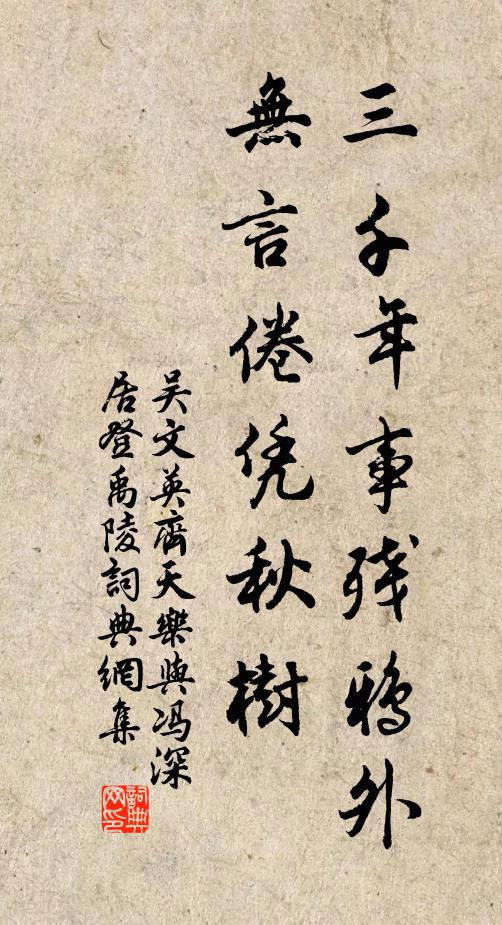 三千年事残鴉外
無言倦凭秋樹
吴文英齊天樂與冯深
居登禹陵詞典網集
詞典
网印